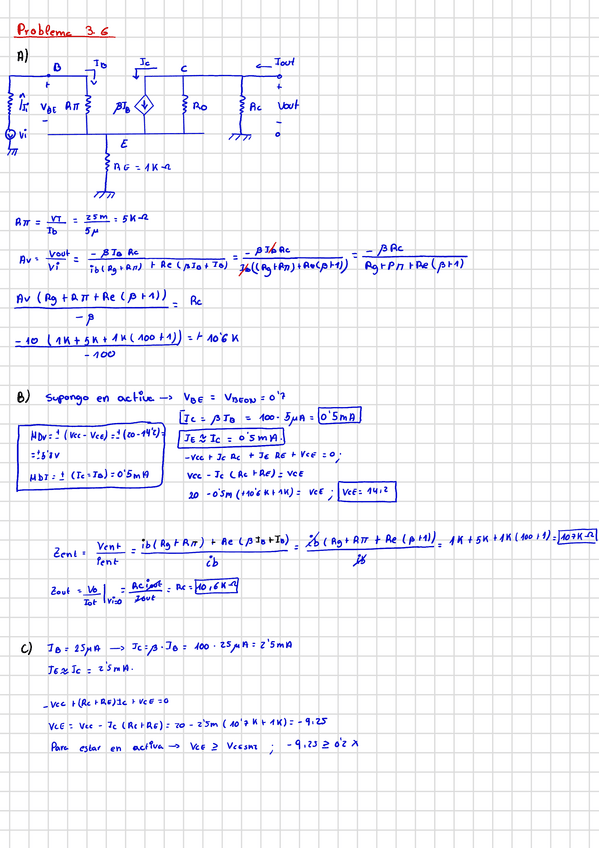 Problema 3.6
A)
B IB Ic C Iout
+ +
Vi VBE Rπ βIB Ro Rc Vout
- -
E
RE = 1K Ω
Rπ = VT/Ib = 25m/5μ = 5K Ω
Av = Vout/Vi = - β IB Rc / ib(Rg + Rπ) + Re (β IB + IB) = - β Ib Rc / Ib((Rg+Rπ)+Re(β+1)) = - β Rc / Rg+Rπ+Re(β+1)
Av (Rg + Rπ + Re (β + 1)) / - β = Rc
-10 (1K + 5K + 1K (100 + 1)) / -100 = + 10'6 K
B) Supongo en activa → VBE = VBEON = 0'7
Ic = β IB = 100 · 5μA = 0'5mA
IE ≈ Ic = 0'5mA.
-Vcc + Ic Rc + IE RE + VCE = 0;
Vcc - Ic (Rc + RE) = VCE
20 - 0'5m (10'6K + 1K) = VCE ; VCE = 14,2
MDV = ± (Vcc - VCE) = ± (20 - 14'2) =
= ± 5'8V
MDI = ± (Ic - IB) = 0'5mA
Zent = Vent/ient = ib(Rg + Rπ) + Re (β IB + IB) / ib = ib (Rg + Rπ + Re (β + 1)) / ib = 1K + 5K + 1K (100 + 1) = 107K Ω
Zout = Vo/Iot |vi=0 = Rc iout/Iout = Rc = 10,6K Ω
C) IB = 25μA → Ic = β · IB = 100 · 25μA = 2'5mA
IE ≈ Ic = 2'5mA.
-Vcc + (Rc + RE) Ic + VCE = 0
VCE = Vcc - Ic (Rc + RE) = 20 - 2'5m (10'7K + 1K) = - 9.25
Para estar en activa → VCE ≥ VCEsat ; - 9.25 ≥ 0'2 X